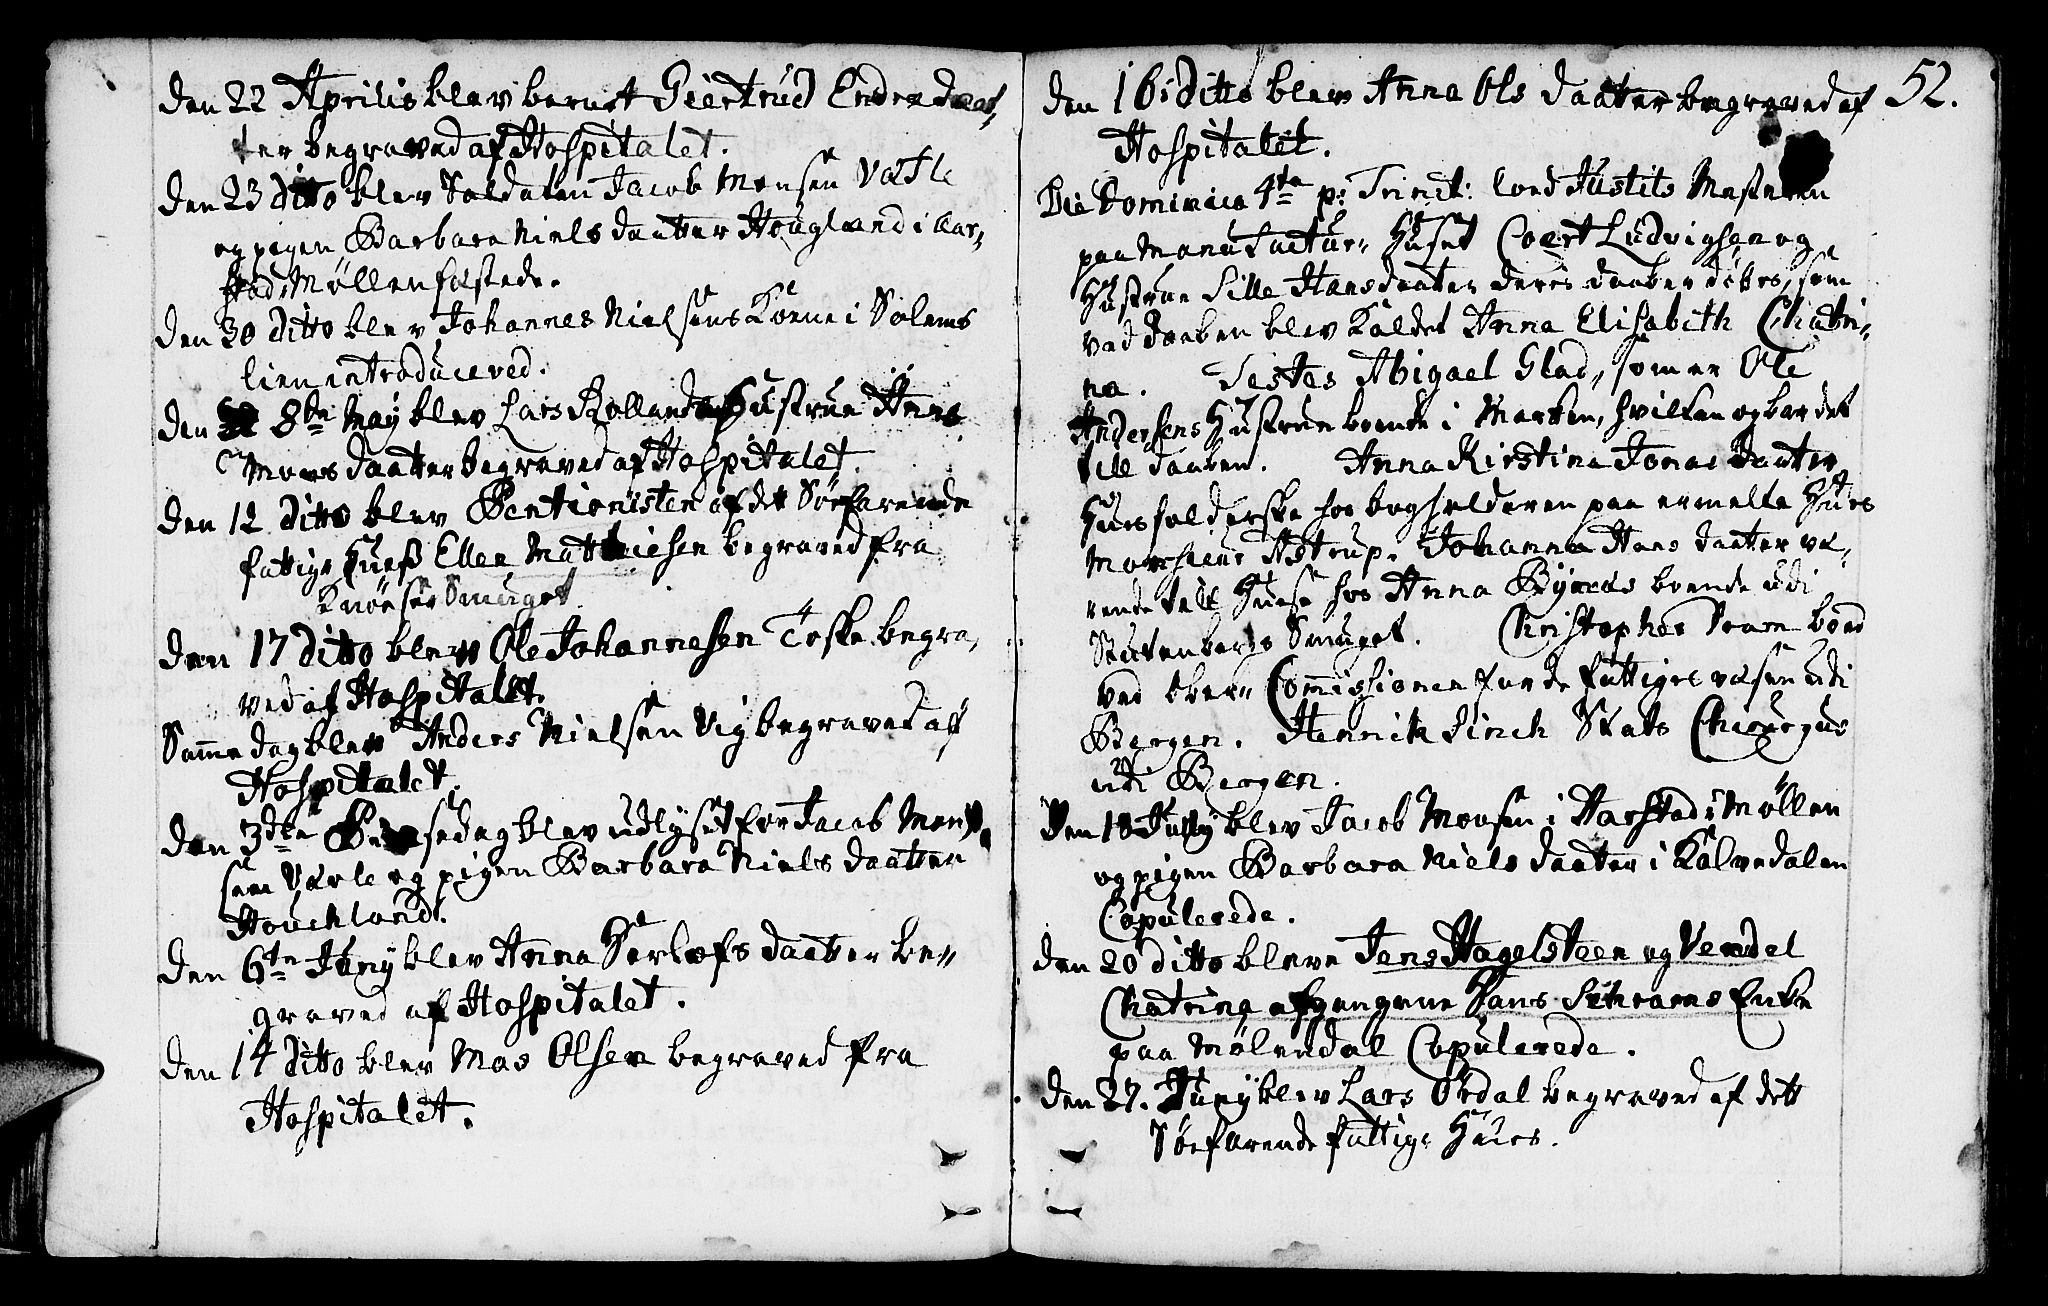 Den 22 Aprilis blev Geertrud Endre daat,
ter begraved af Hospitalet.
Den 23 ditto blev Soldaten Jacob Monsen
og pigen Barbara Niels daatter Hougland i Aar,
stad Møllen fæstede.
Den 30 ditto blev Johannes Nielsens Kone i Solems
lien introduceved.
Den 8de May blev Lars Rollands Hustrue Anna
Mons daatter begraved af Hospitalet.
Den 12 ditto blev Pentionisten af det Søefarende
fattig: Hues Ellen Mattiesen begraved fra
Smuget.
Den 17 ditto blev Ole Johannesen Toske begra,
ved af Hospitalet.
Samme dag blev Anders Nielsen Vig begraved af
Hospitalet.
Den 3die sedag blev udlyset for Jacob Mon,
sen og pigen Barbara Niels daatter
Houchland.
Den 6te Juny blev Anna daatter be,,
graved af Hospitalet.
Den 14 ditto blev Mas Olsen begraved fra
Hospitalet.
52.
Den 16 ditto blev Anna Ols daatter begraved af
Hospitalet.
Die Dominica 4ta p: Trinit: lod Justits Mesteren
paa Manufactur,, Huset Coert Ludvigsen og
Hustrue Sille Hansdaatter deris daatter døbes, som
ved daaben blev kaldet Anna Elisabeth Chatri,
na. Testes Abigael Glad, som er Ole
Andersens Hustrue boende i Marken, hvilken og bar det
till daaben. Anna Kirstina Jonas daatter
Huusholderske hos bogholderen paa ermelte Hues
Monsieur Astrup. Johanna Hans daatter væ,
rende till Huese hos Anna boende udi
Smuget. Christopher boed
ved Ober,, Commissionen for de fattiges væsen udi
Bergen. Henrik Finch Stats Chirurgus
udi Bergen.
Den 18 July blev Jacob Monsen i Aarstad Møllen
og pigen Barbara Niels daatter i Kalvedalen
Copulerede.
Den 20 ditto bleve Jens Hagelsteen og Vendel
Chatrina afgangne Hans Enke
paa Mølendal Copulerede.
Den 27. Juny blev Lars Ørdal begraved af dett
Søefarende fattig: Hues.